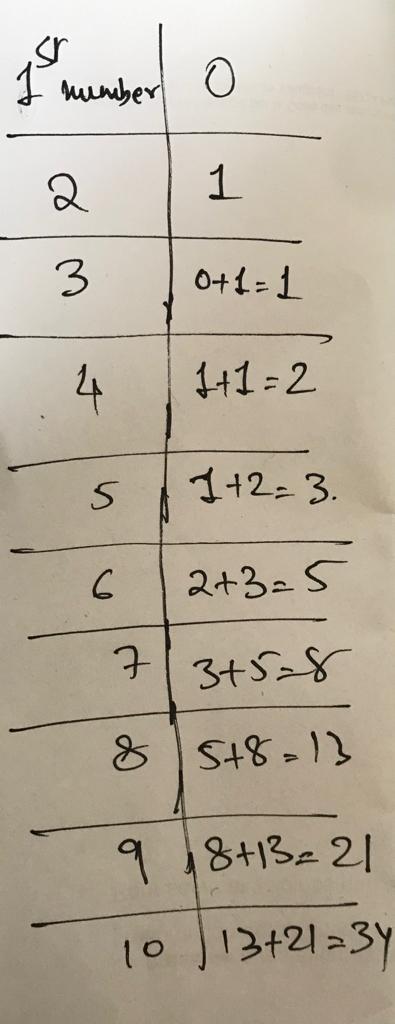 1st number 0
2 1
3 0+1=1
4 1+1=2
5 1+2=3.
6 2+3=5
7 3+5=8
8 5+8=13
9 8+13=21
10 13+21=34